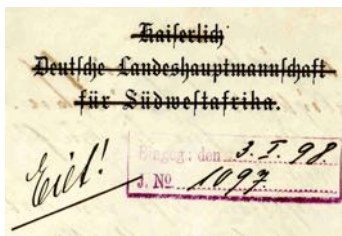 Kaiserlich
Deutsche Landeshauptmannschaft
für Südwestafrika.
Eilt!
Eingeg.: den 3. I. 98.
J. No 1097.